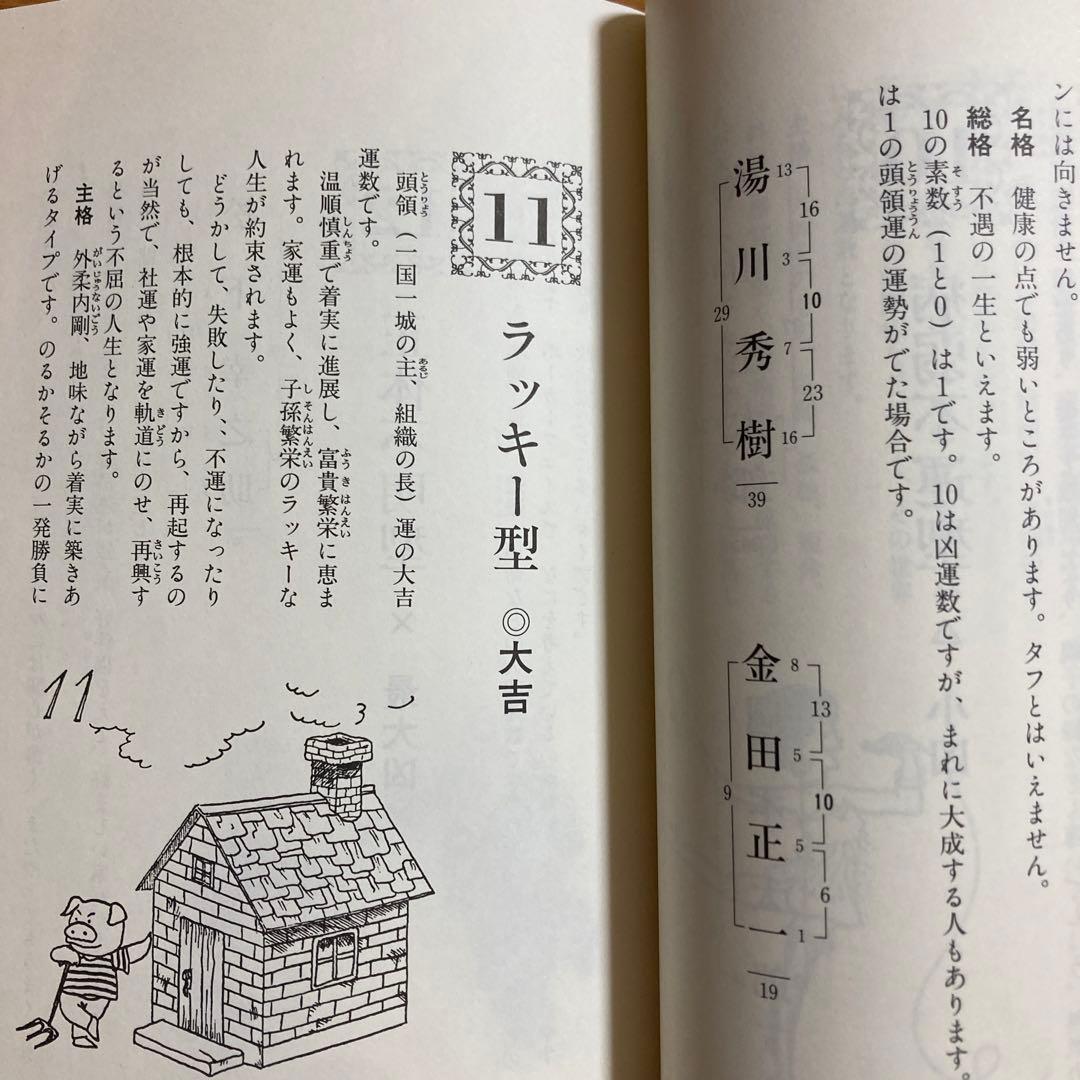 ンには向きません。
名格 健康の点でも弱いところがあります。タフとはいえません。
総格 不遇の一生といえます。
10の素数（1と0）は1です。10は凶運数ですが、まれに大成する人もあります。
は1の頭領運の運勢がでた場合です。
湯川秀樹
13
3
7
16
16
10
23
29
39
金田正一
8
5
5
1
13
10
6
9
19
11
ラッキー型 ◎大吉
頭領（一国一城の主、組織の長）運の大吉
運数です。
温順慎重で着実に進展し、富貴繁栄に恵ま
れます。家運もよく、子孫繁栄のラッキーな
人生が約束されます。
どうかして、失敗したり、、不運になったり
しても、根本的に強運ですから、再起するの
が当然で、社運や家運を軌道にのせ、再興す
るという不屈の人生となります。
主格 外柔内剛、地味ながら着実に築きあ
げるタイプです。のるかそるかの一発勝負に
11